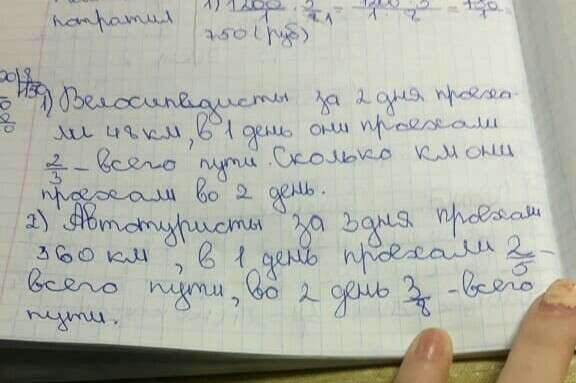 потратил
750 (руб)
1) Велосипедисты за 2 дня проеха-
ли 48 км, в 1 день они проехали
2/3 - всего пути. Сколько км они
проехали во 2 день.
2) Автотуристы за 3 дня проехали
360 км, в 1 день проехали 2/5 -
всего пути, во 2 день 3/8 - всего
пути.